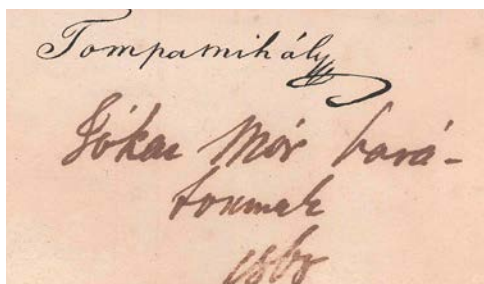 Tompamihály
Jókai Mór bará-
tomnak